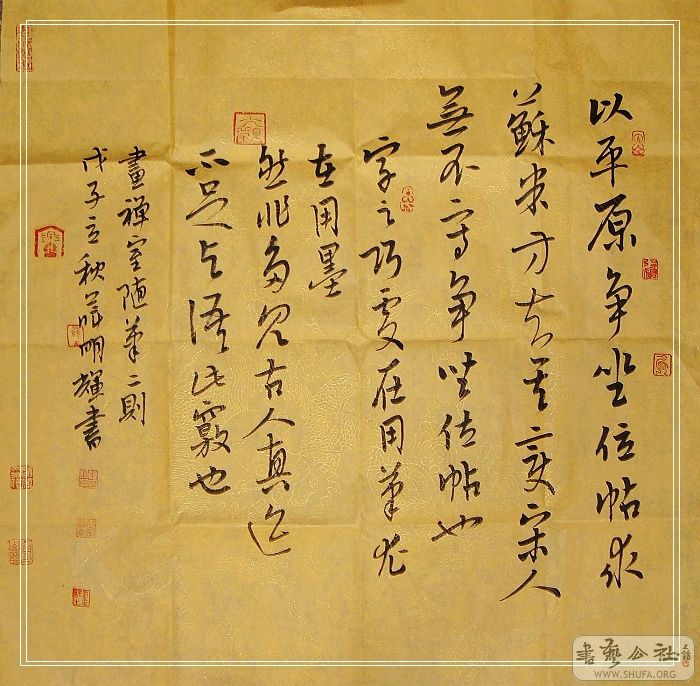 以平原争坐位帖求
蘇米方知其变宋人
無不写争坐位帖也
字之巧处在用筆尤
在用墨
然非多见古人真迹
不足与语此竅也
畫禅室随筆二则
戊子立秋 明輝書
書藝公社
WWW.SHUFA.ORG